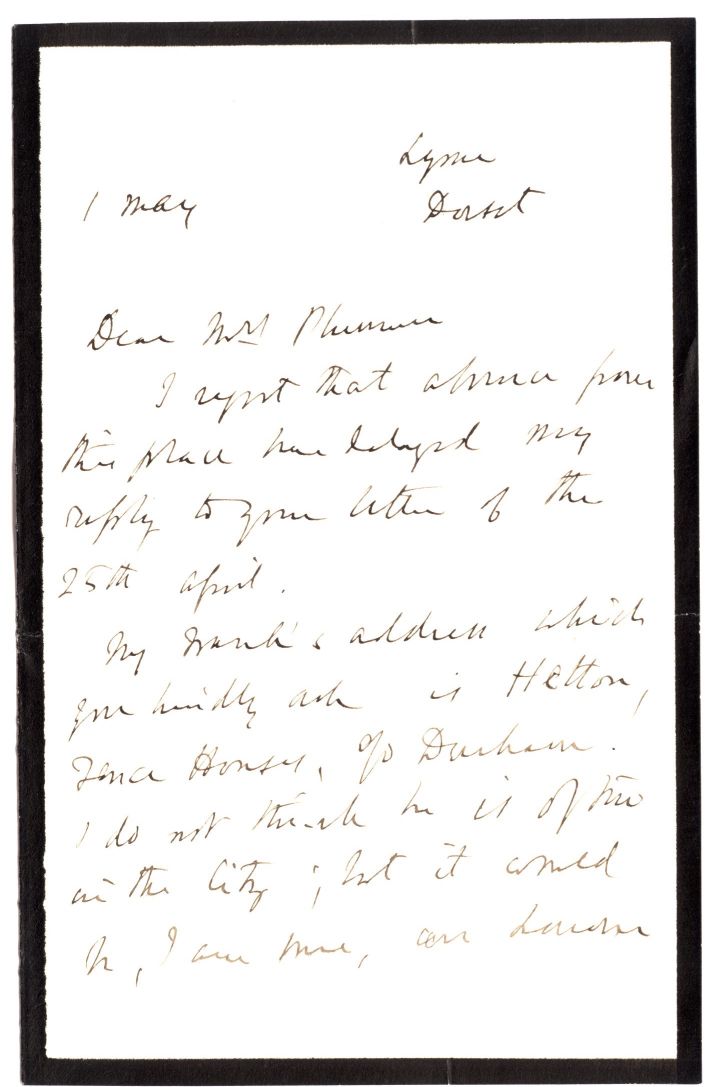 Lyme
1 May Dorset
Dear Mrs Plummer
I regret that absence from
this place has delayed my
reply to your letter of the
25th April.
My address which
you kindly ask is Hetton,
Fence Houses, Co Durham.
I do not think he is often
in the City; but it would
be, I am sure, an